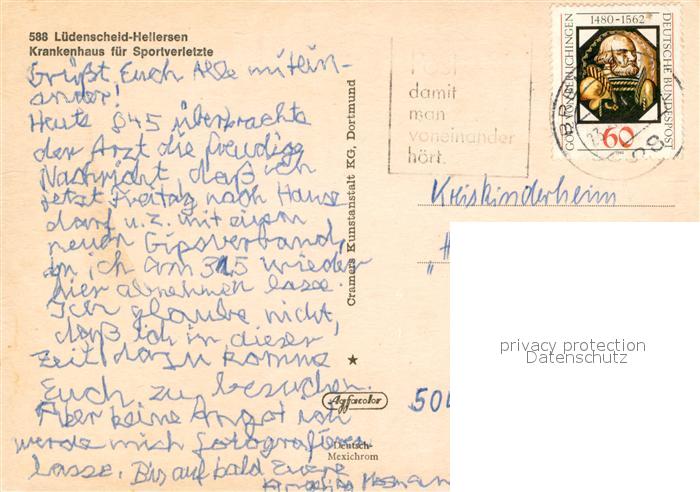 588 Lüdenscheid-Hellersen
Krankenhaus für Sportverletzte
Grüßt Euch Alle mitein-
ander!
Heute 845 überbrachte
der Arzt die freudige
Nachricht daß ich
jetzt Freitag nach Hause
darf u. z. mit einem
neuen Gipsverband,
ich am 31.5 wieder
hier abnehmen lasse.
Ich glaube nicht,
daß ich in dieser
Zeit dazu komme
Euch zu besuchen.
Aber keine Angst ich
werde mich fotografieren
lasse. Bis auf bald Eure
Cramers Kunstanstalt KG, Dortmund
Agfacolor
Deutsch-
Mexichrom
damit
man
voneinander
hört.
1480-1562
GÖTZ VON BERLICHINGEN
DEUTSCHE BUNDESPOST
60
Kreiskinderheim
privacy protection
Datenschutz